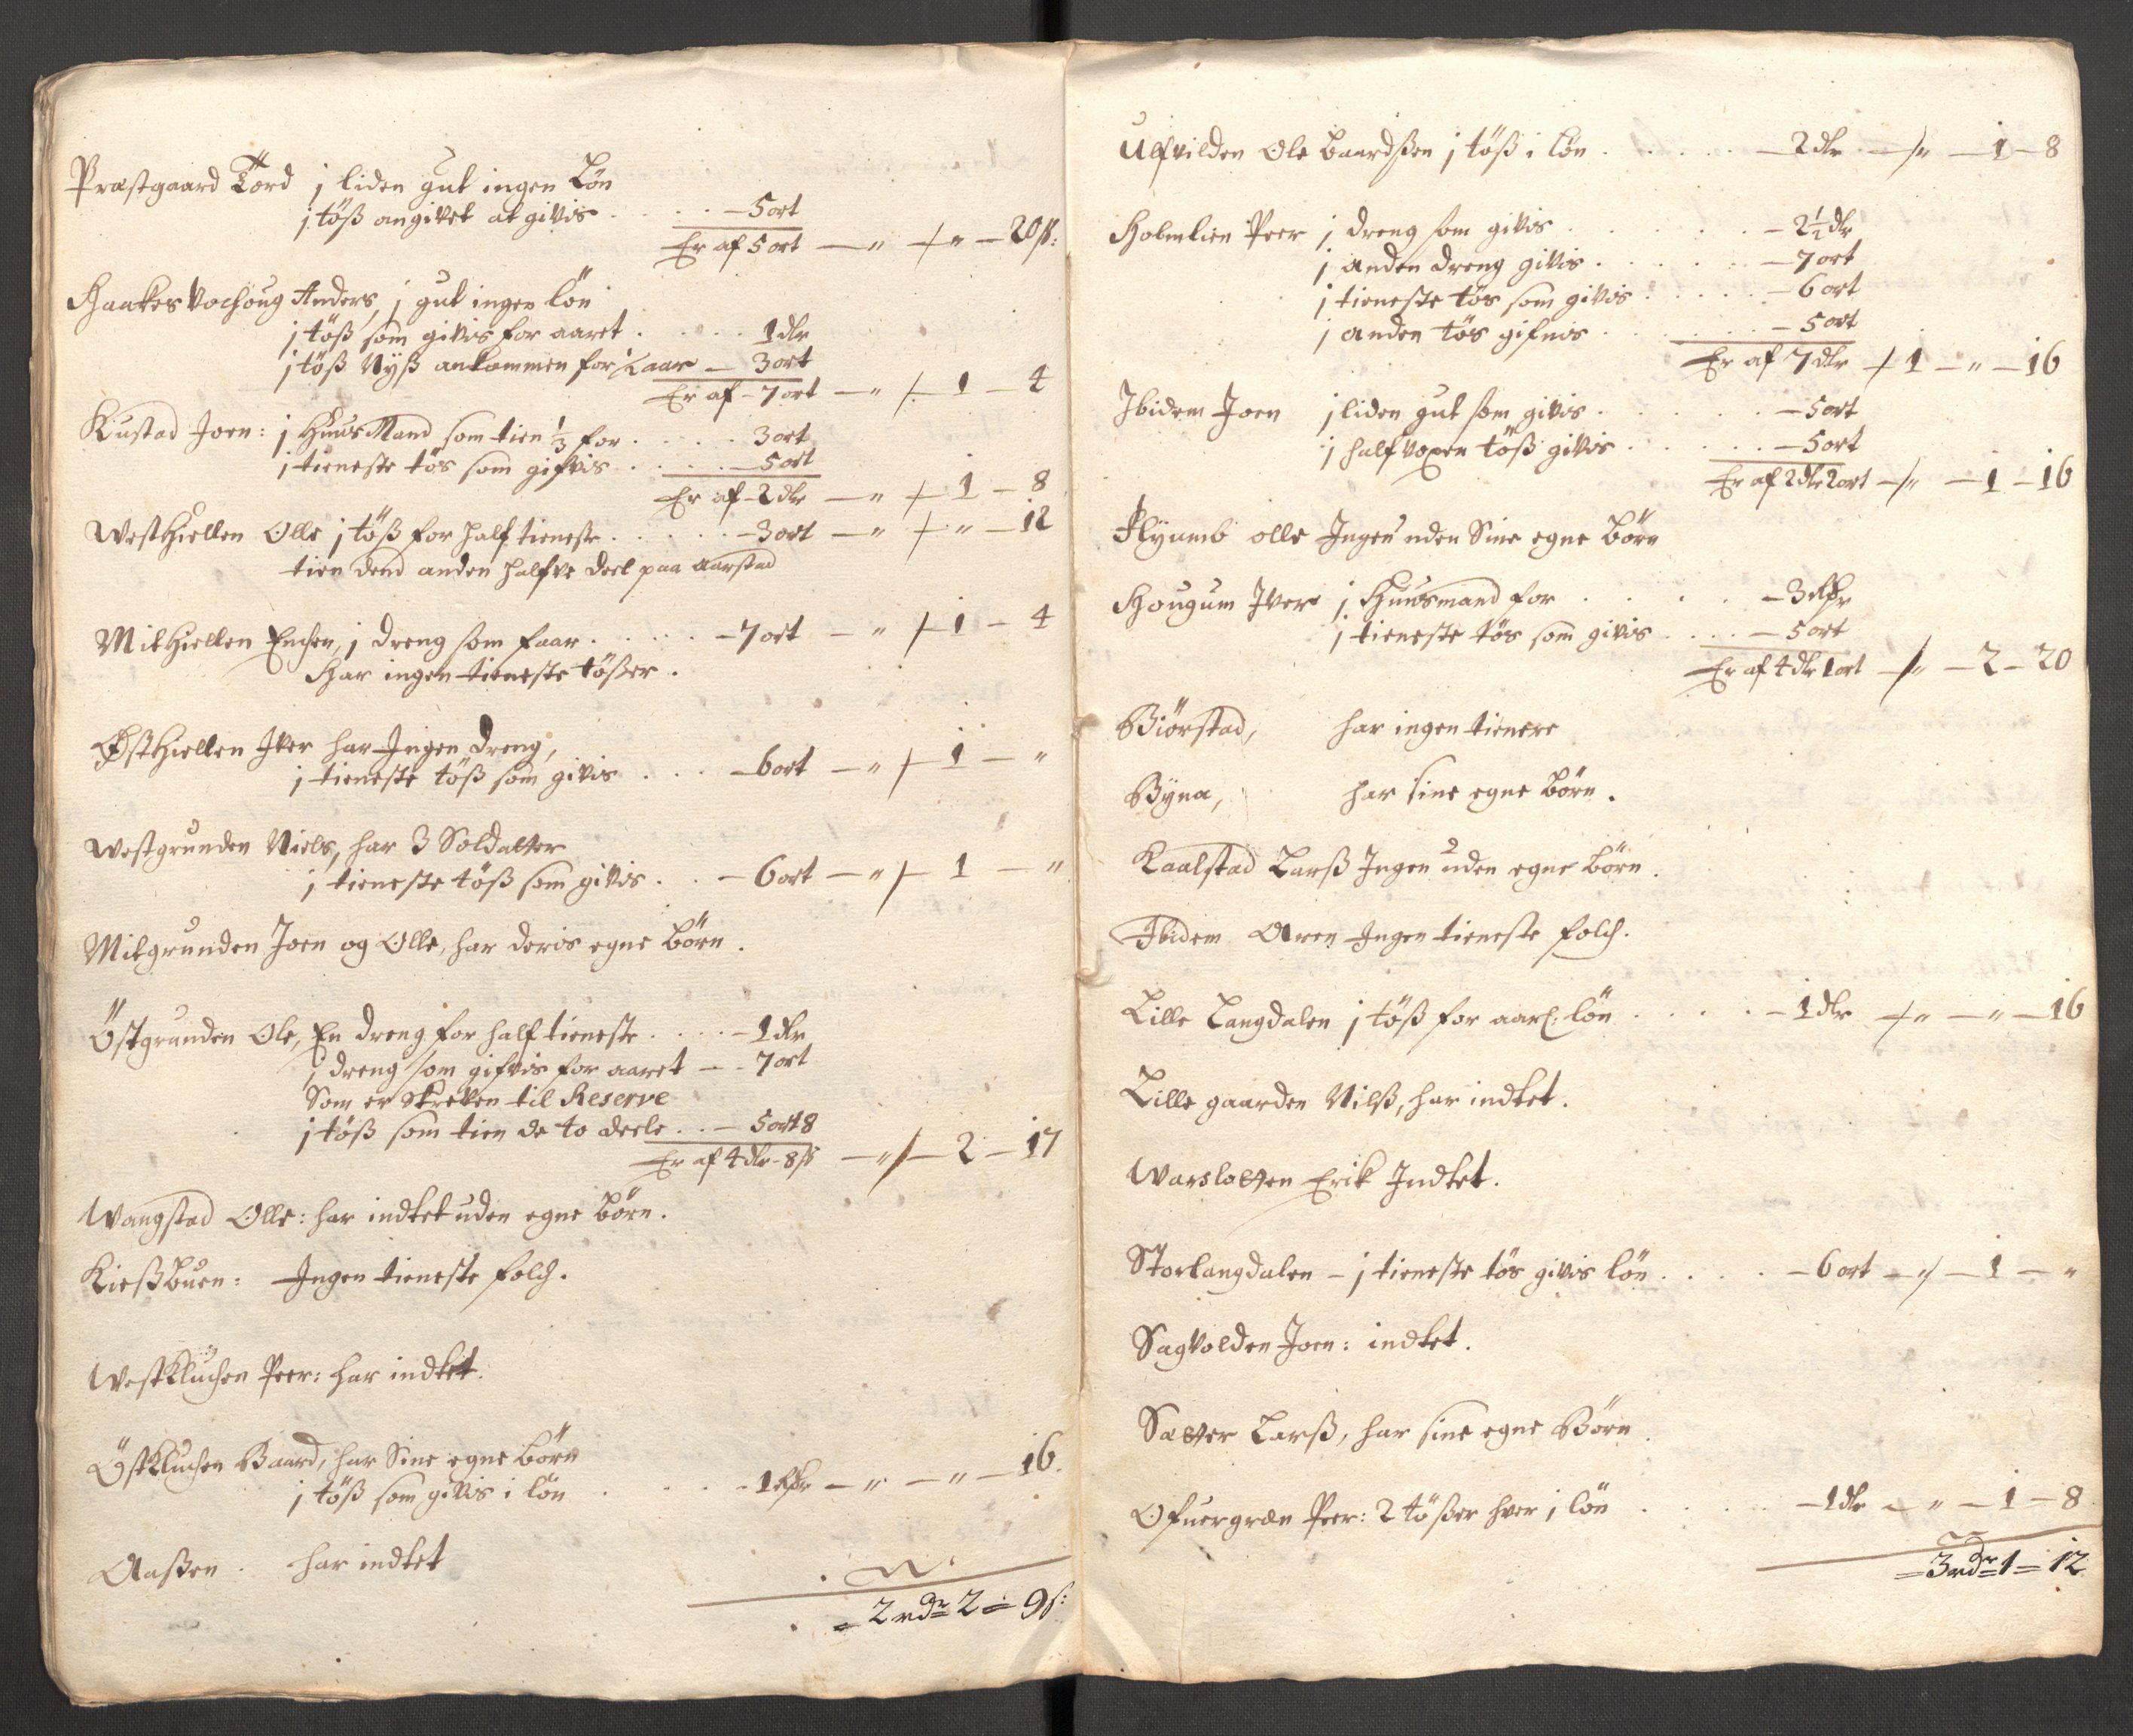 Præstgaard Tord j liden gut ingen Løn
j töß angivet at givis . . . . — 5 ort
Er af 5 ort — " — " — 20 ß:
Haakes Anders, j gut ingen lön
j töß som givis for aaret . . . . 1 dlr
j töß Nyß ankommen for ½ aar — 3 ort
Er af — 7 ort — " — 1 — 4
Kustad Joen: j HuusMand som tien ⅓ for . . . . 3 ort
j tieneste tös som gifvis . . . . — 5 ort
Er af — 2 dlr — " — 1 — 8
WestHiellen Olle j töß for half tieneste . . . . — 3 ort — " — " — 12
tien dend anden halfve deel paa Aarstad
MitHiellen, j dreng som faar . . . . — 7 ort — " — 1 — 4
Har ingen tieneste tößer.
ØstHiellen Iver har Ingen dreng,
j tieneste töß som givis . . . — 6 ort — " — 1 — "
Westgrunden Niels, har 3 Soldatter
j tieneste töß som givis . . — 6 ort — " — 1 — "
Mitgrunden Joen og Olle, har deris egne börn.
Östgrunden Ole, En dreng for half tieneste . . . . — 1 dlr
j dreng som gifvis for aaret — . 7 ort
Som er skreven til Reserve
j töß som tien de to deele . . — 5 ort 8
Er af 4 dlr - 8 ß — " — 2 — 17
Wangstad Olle: har indtet uden egne börn.
Kießbuen: Ingen tieneste folch.
WestKluchen Peer: har indtet.
ÖstKluchen Baard, har Sine egne börn
j töß som givis i lön . . . . 1 Rdr — " — " — 16.
Aaßen . har indtet
= 2 rdr = 2 = 9 ß:
Ulfvilden Ole Baardßen j töß i lön . . . . . — 2 dlr — " — 1 — 8
Holmlien Peer j dreng som givis . . . . . — 2½ dlr
j anden dreng givis . . . . . — 7 ort
j tieneste tös som givis . . . . — 6 ort
j anden tös gifvis . . . . . — 5 ort
Er af 7 dlr — 1 — " — 16
Ibidem Joen j liden gut som givis . . . . . — 5 ort
j half voxen töß givis . . . . . — 5 ort
Er af 2 dlr 2 ort — " — 1 — 16
olle Ingen uden Sine egne börn
Hougum Iver j Huusmand for . . . . — 3 Rdr
j tieneste tös som givis . . . — 5 ort
Er af 4 dlr 1 ort — " — 2 — 20
Biörstad, har ingen tienere
Byna, har sine egne börn.
Kaalstad Larß Ingen uden egne börn.
Ibidem Aren Ingen tieneste folch.
Lille Langdalen j töß for aarl: lön . . . . — 1 dlr — " — " — 16
Lille gaarden Nilß, har indtet.
Warslotten Erik Indtet.
Storlangdalen — j tieneste tös givis lön . . . . — 6 ort — " — 1 — "
Sagvolden Joen: indtet.
Sætter Larß, har sine egne Börn.
Ofuergræn Peer: 2 tößer hver i lön . . . . — 1 dlr — " — 1 — 8
= 3 rdr = 1 = 12